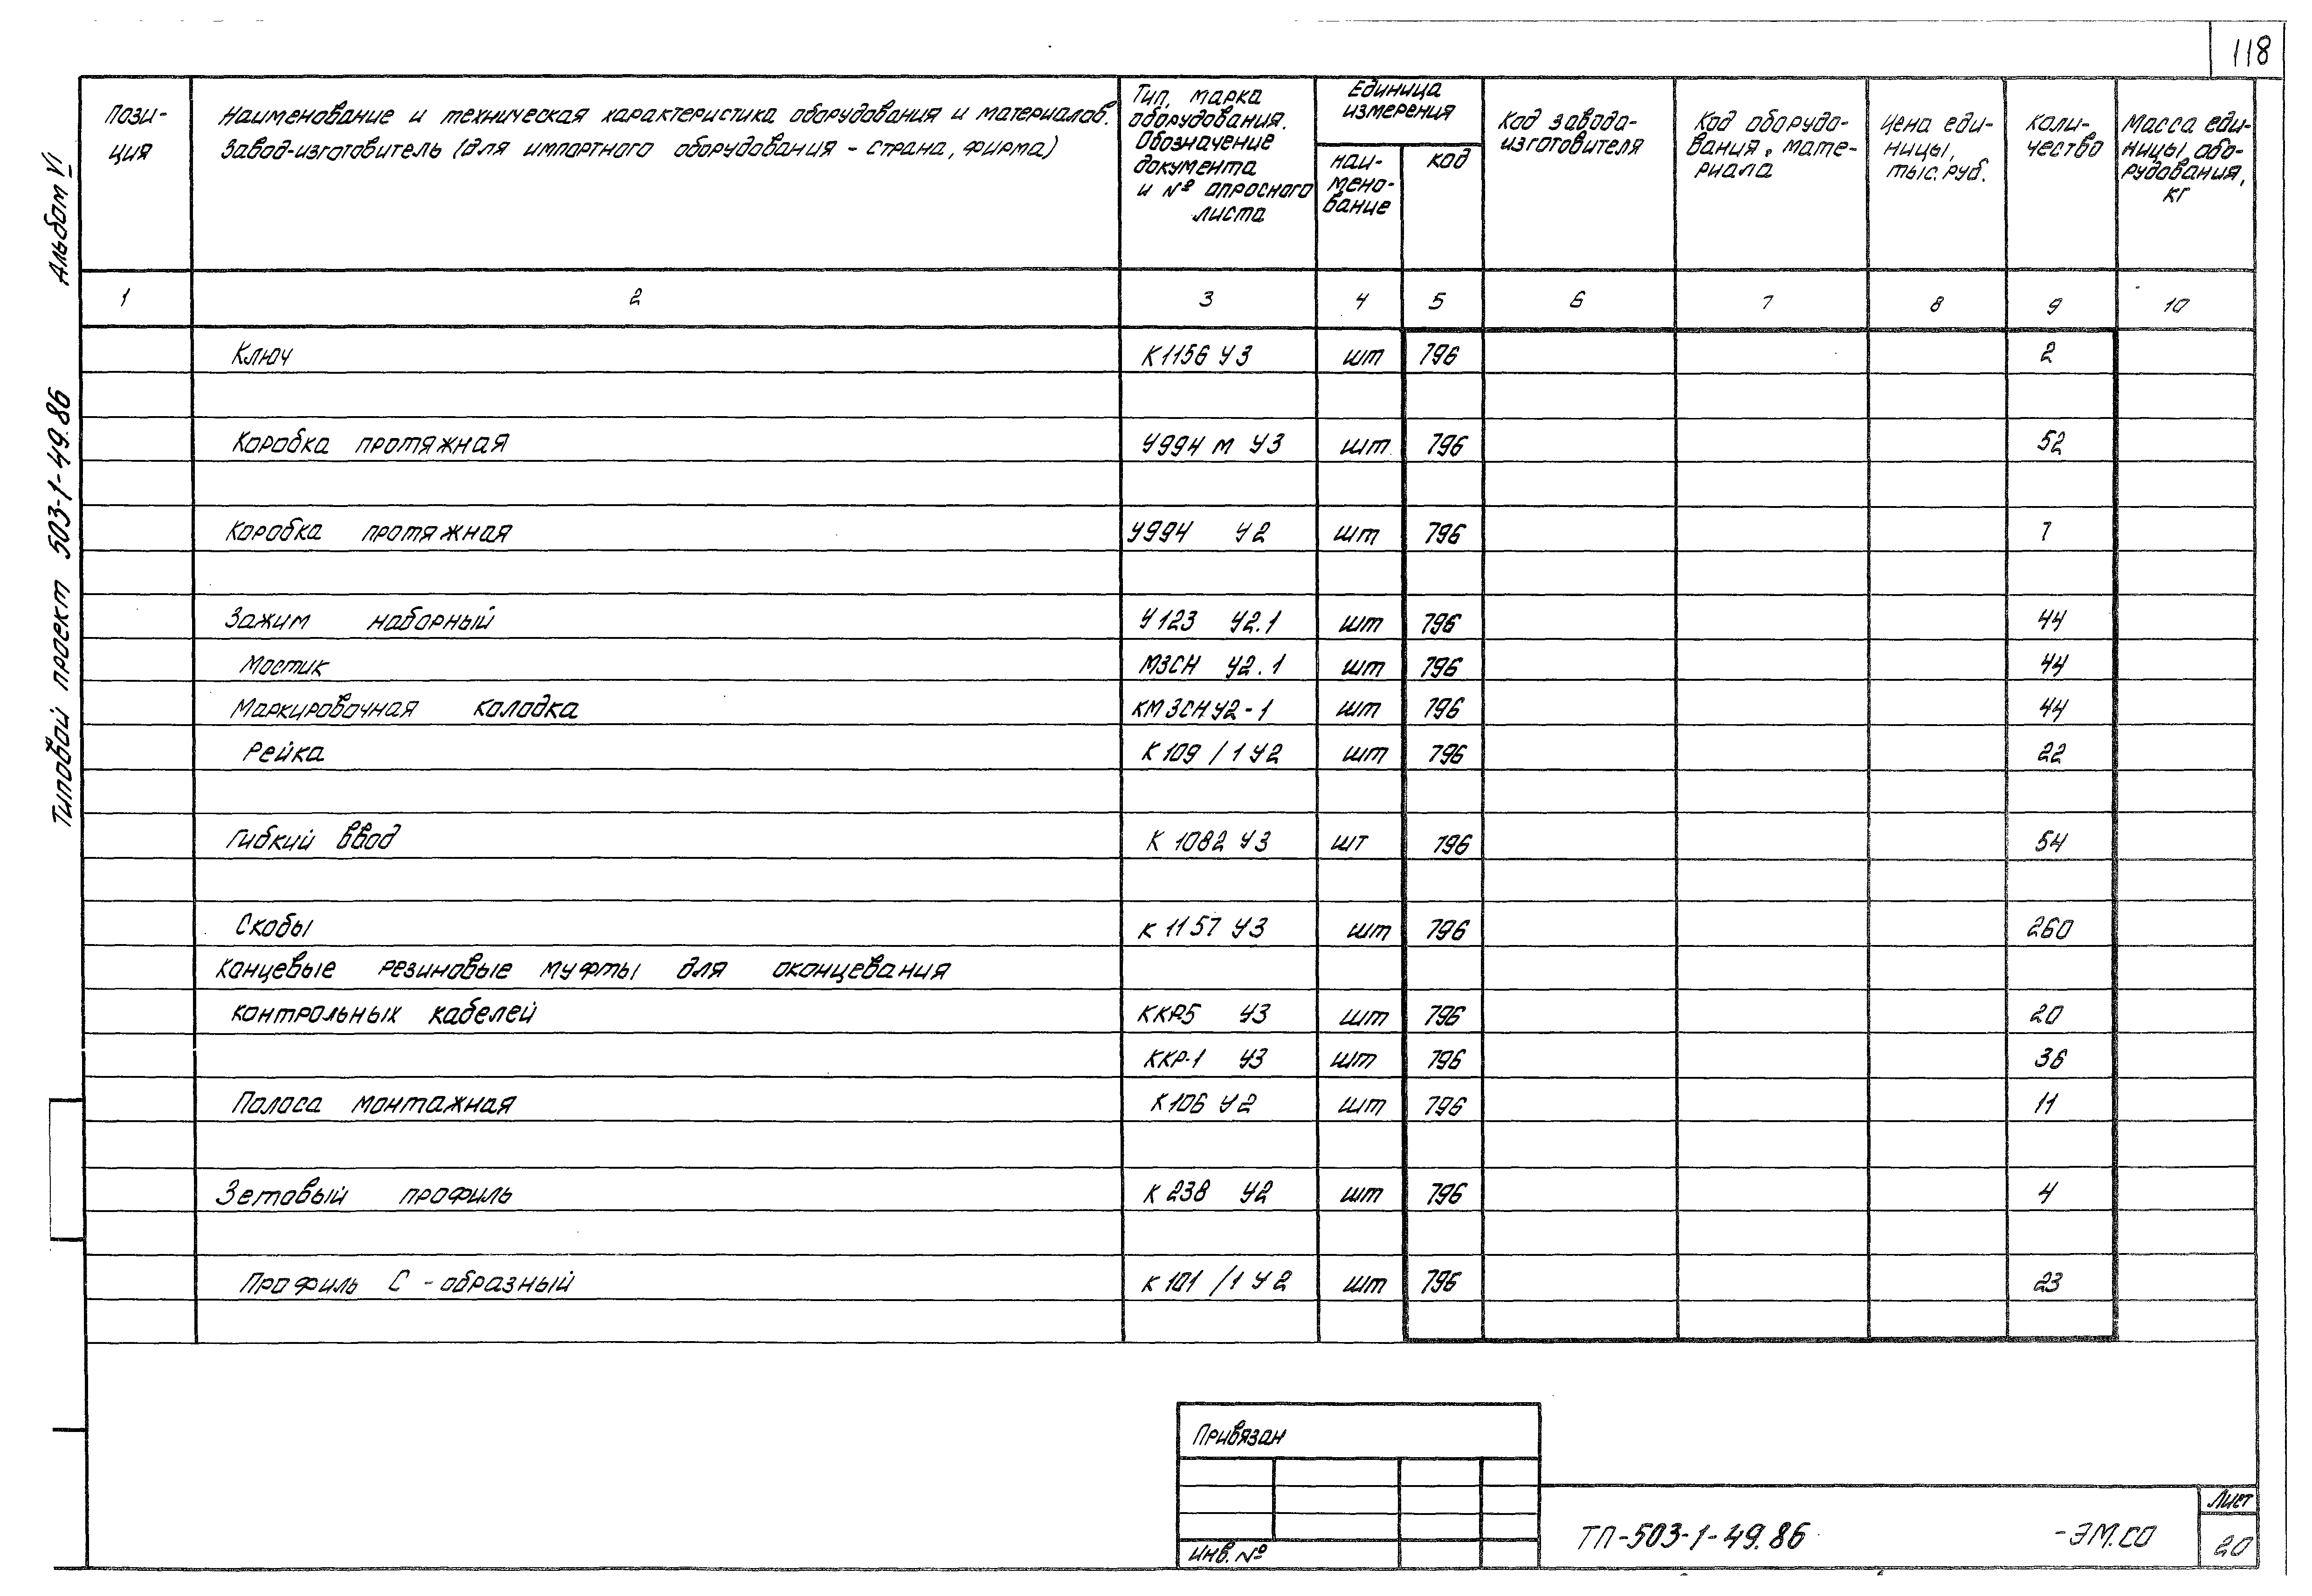 118
Альбом VI
Типовой проект 503-1-49.86
Пози-
ция
Наименование и техническая характеристика оборудования и материалов.
Завод-изготовитель (для импортного оборудования - страна, фирма)
Тип, марка
оборудования.
Обозначение
документа
и № опросного
листа
Единица
измерения
наи-
мено-
вание
код
Код завода-
изготовителя
Код оборудо-
вания, мате-
риала
Цена еди-
ницы,
тыс. руб.
Коли-
чество
Масса еди-
ницы обо-
рудования,
кг
1 2 3 4 5 6 7 8 9 10
Ключ К1156 У3 шт 796 2
Коробка протяжная У994 М У3 шт 796 52
Коробка протяжная У994 У2 шт 796 1
Зажим наборный У123 У2.1 шт 796 44
Мостик МЗСН У2.1 шт 796 44
Маркировочная колодка КМЗСНУ2-1 шт 796 44
Рейка К109/1У2 шт 796 22
Гибкий ввод К 1082 У3 шт 796 54
Скобы К 1157 У3 шт 796 260
Концевые резиновые муфты для оконцевания
контрольных кабелей ККР-5 У3 шт 796 20
ККР-1 У3 шт 796 36
Полоса монтажная К106 У2 шт 796 11
Зетовый профиль К 238 У2 шт 796 4
Профиль С-образный К101/1У2 шт 796 23
Привязан
Инв. №
ТП-503-1-49.86 -ЭМ.СО
Лист
20